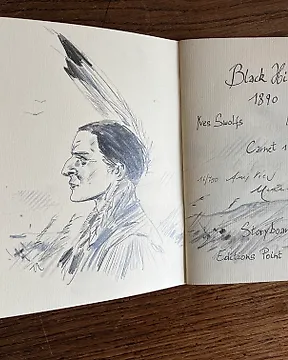 Black Hi
1890
Yves Swolfs
Carnet 1
Storyboar
Editions Point